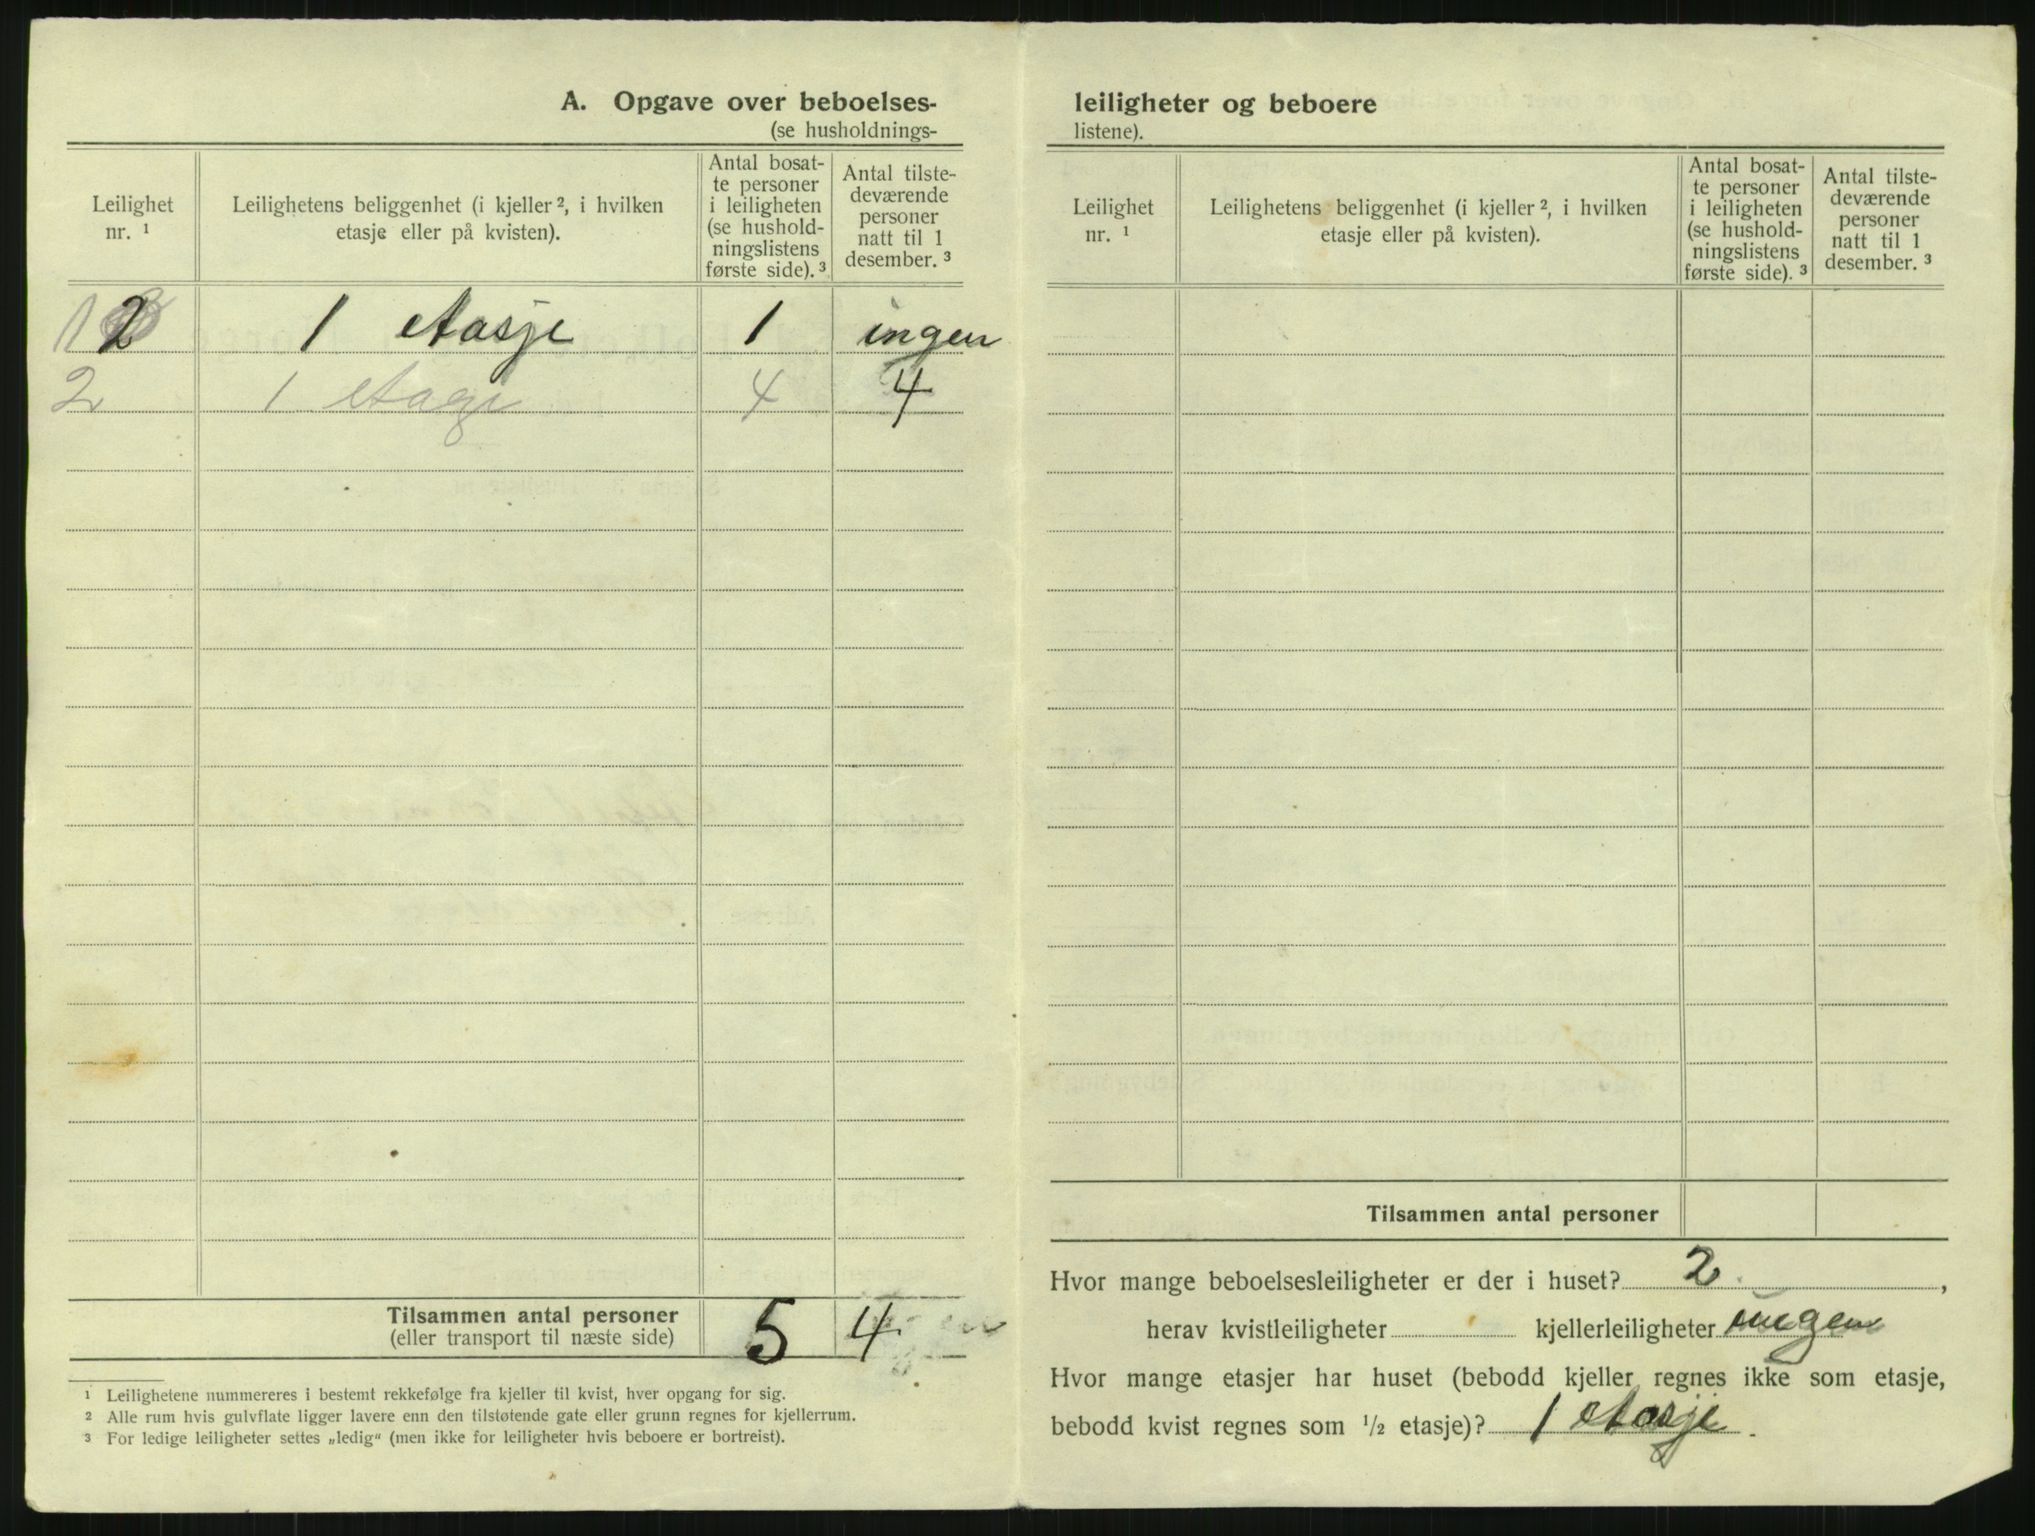 A. Opgave over beboelses-
(se husholdnings-
Leilighet
nr. ¹
Leilighetens beliggenhet (i kjeller ², i hvilken
etasje eller på kvisten).
Antal bosat-
te personer
i leiligheten
(se hushold-
ningslistens
første side). ³
Antal tilste-
deværende
personer
natt til 1
desember. ³
1 2 1 etasje 1 ingen
2 1 etage 4 4
Tilsammen antal personer 5 4
(eller transport til næste side)
¹ Leilighetene nummereres i bestemt rekkefølge fra kjeller til kvist, hver opgang for sig.
² Alle rum hvis gulvflate ligger lavere enn den tilstøtende gate eller grunn regnes for kjellerrum.
³ For ledige leiligheter settes „ledig“ (men ikke for leiligheter hvis beboere er bortreist).
leiligheter og beboere
listene).
Leilighet
nr. ¹
Leilighetens beliggenhet (i kjeller ², i hvilken
etasje eller på kvisten).
Antal bosat-
te personer
i leiligheten
(se hushold-
ningslistens
første side). ³
Antal tilste-
deværende
personer
natt til 1
desember. ³
Tilsammen antal personer
Hvor mange beboelsesleiligheter er der i huset? 2 ,
herav kvistleiligheter kjellerleiligheter ingen
Hvor mange etasjer har huset (bebodd kjeller regnes ikke som etasje,
bebodd kvist regnes som ½ etasje)? 1 etasje .